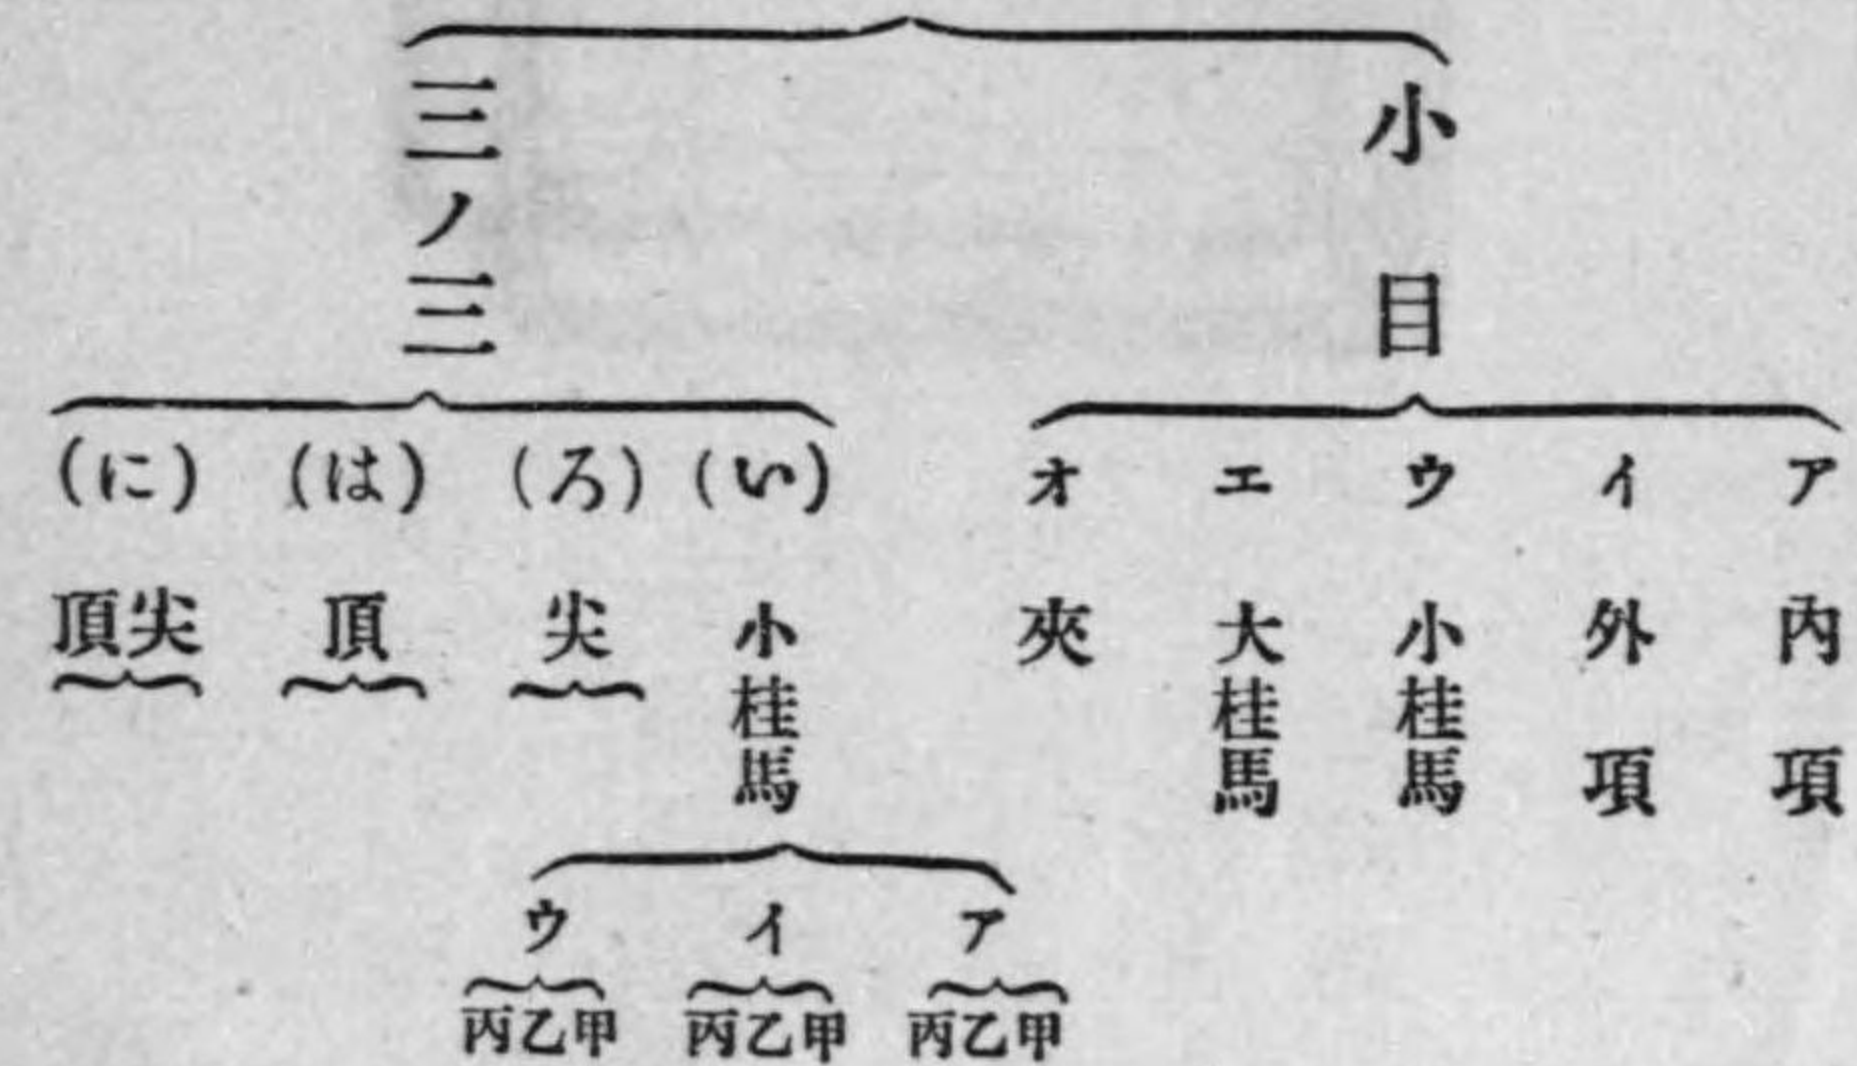 小目
ア 内項
イ 外項
ウ 小桂馬
エ 大桂馬
オ 夾
三ノ三
(い) 小桂馬
ア
甲乙丙
イ
甲乙丙
ウ
甲乙丙
(ろ) 尖
(は) 頂
(に) 尖頂